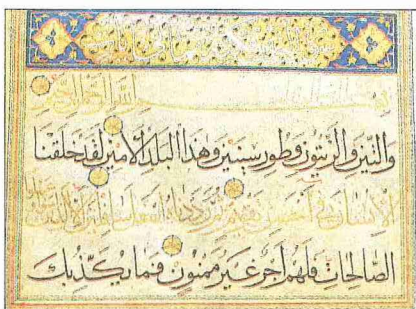 بسم الله الرحمن الرحيم
والتين والزيتون وطور سينين وهذا البلد الامين لقد خلقنا
الانسان في احسن تقويم ثم رددناه اسفل سافلين الا الذين
الصالحات فلهم اجر غير ممنون فما يكذبك